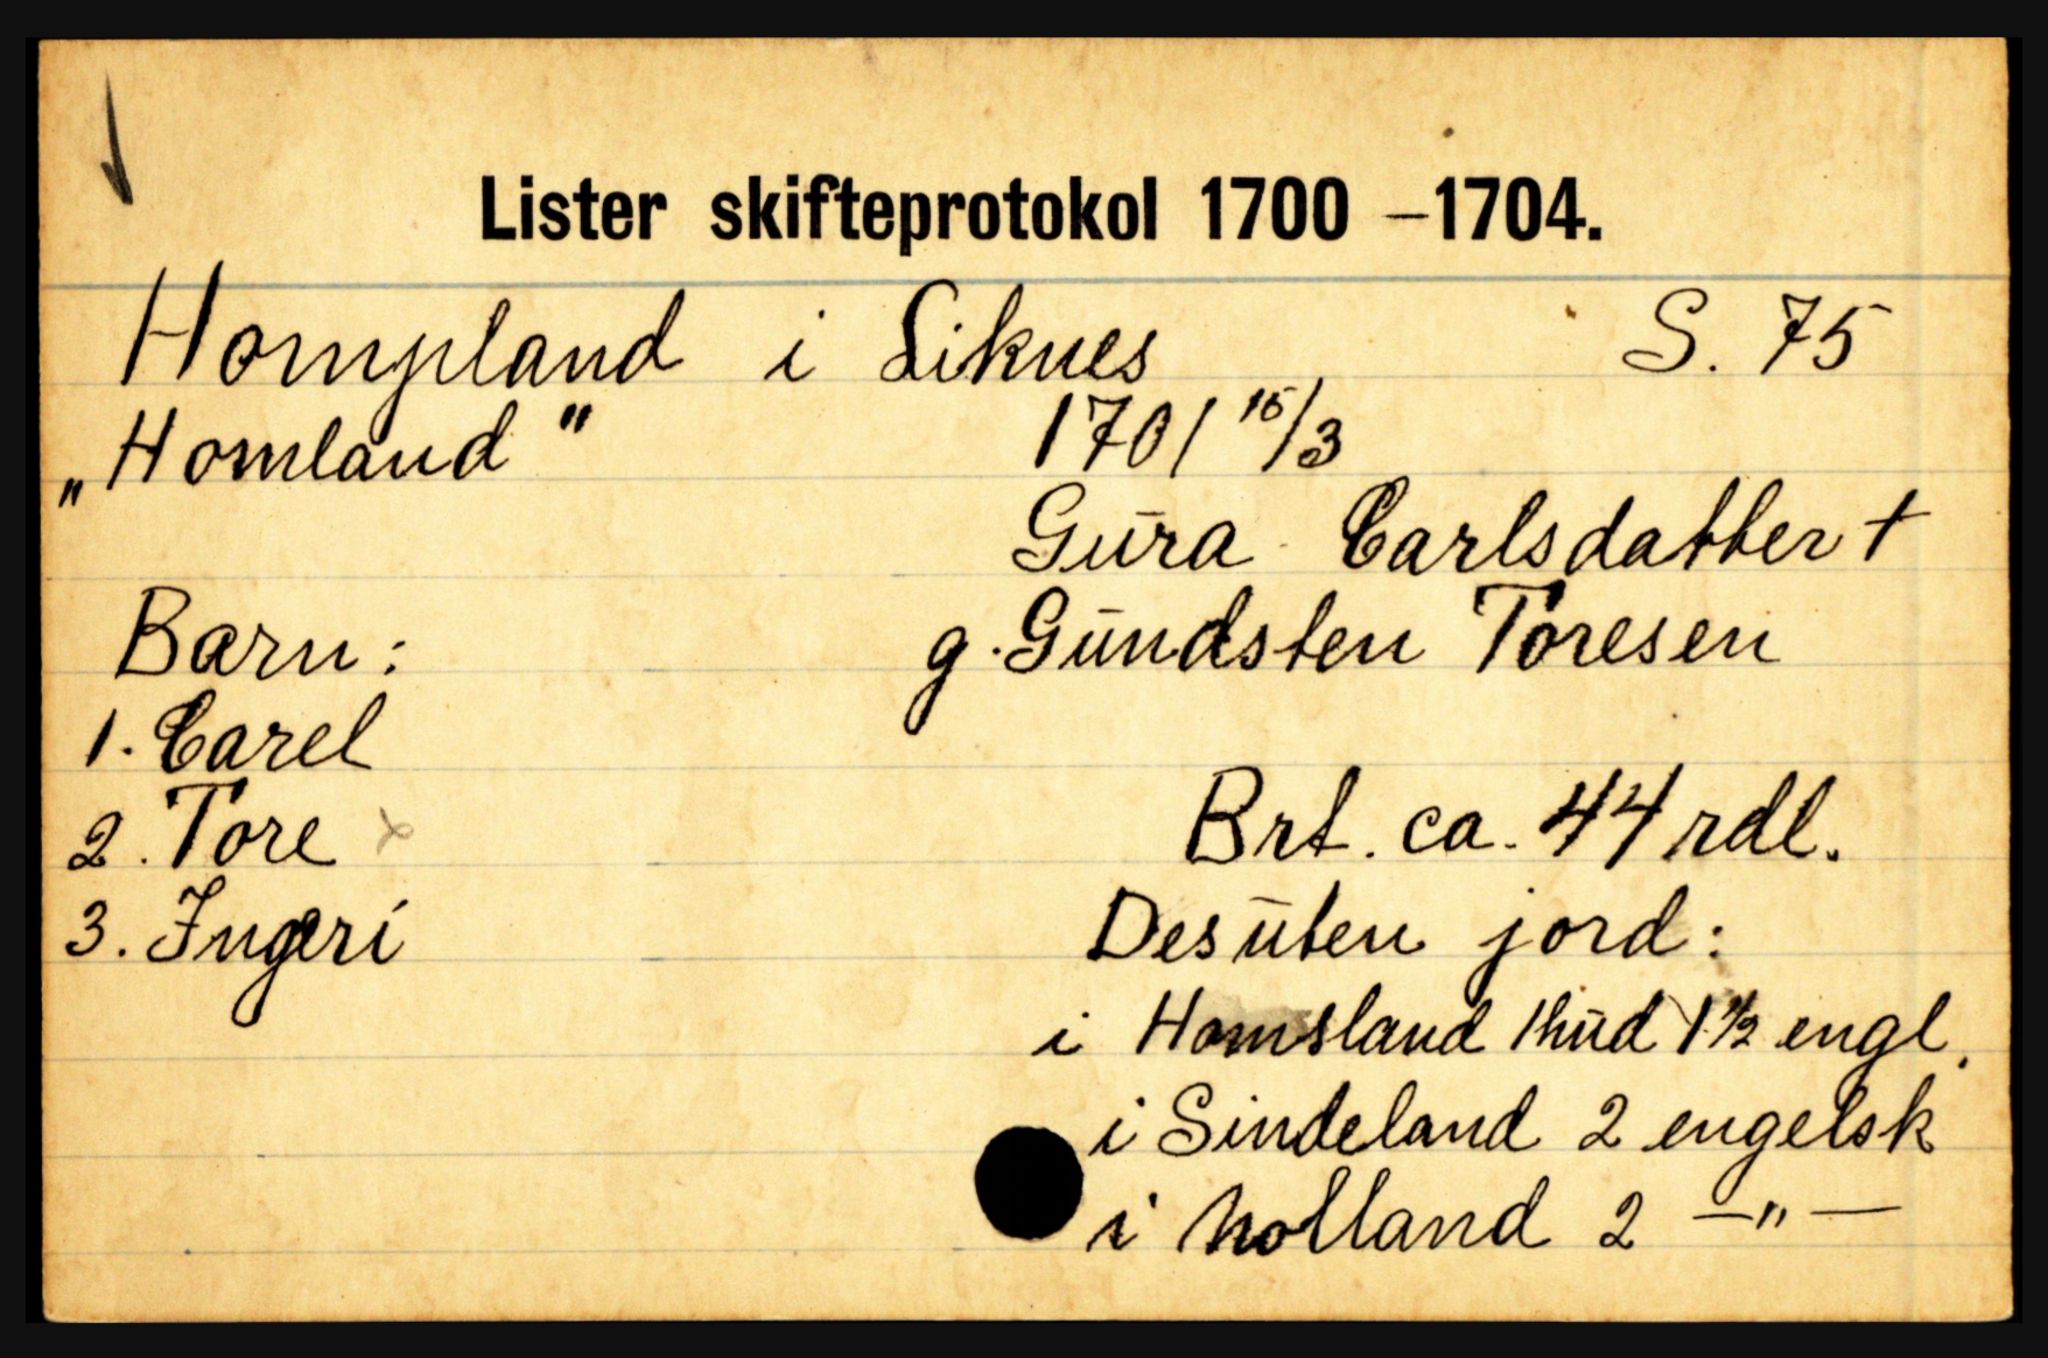 Lister skifteprotokol 1700 – 1704.
Hompland i Liknes S. 75
„Homland" 1701 15/3
Gūra Carlsdatter †
Barn: g. Gūndsten Toresen
1. Carel
2. Tore x Brt. ca. 44 rdl.
3. Ingeri Desūten jord:
i Homsland 1 hūd 1 1/2 engl.
i Sindeland 2 engelsk
i Molland 2 —„—